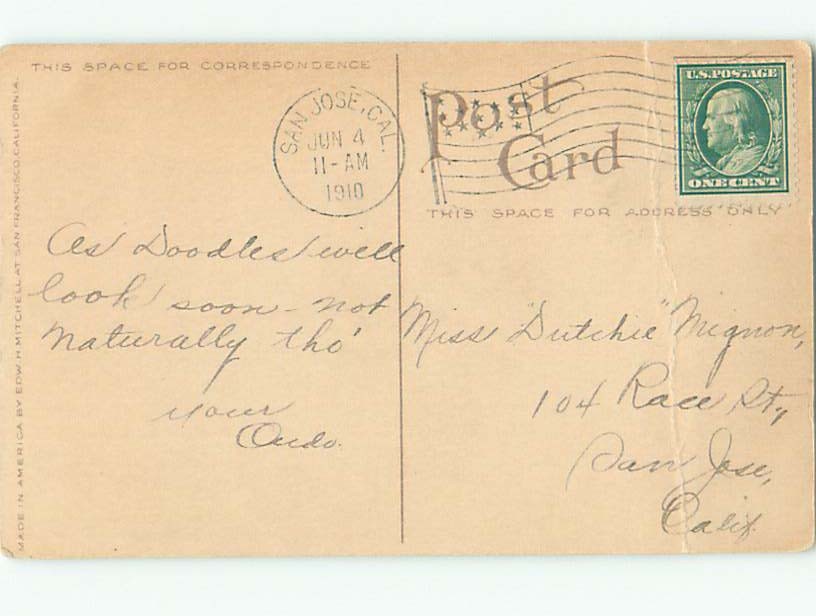 THIS SPACE FOR CORRESPONDENCE
SAN JOSE, CAL.
JUN 4
11-AM
1910
Post
Card
U.S. POSTAGE
ONE CENT
THIS SPACE FOR ADDRESS ONLY
MADE IN AMERICA BY EDW. H. MITCHELL AT SAN FRANCISCO, CALIFORNIA.
As Doodles will
look soon - not
naturally tho'
your
Miss "Dutchie" Mignon,
104 Race St.,
San Jose,
Calif.